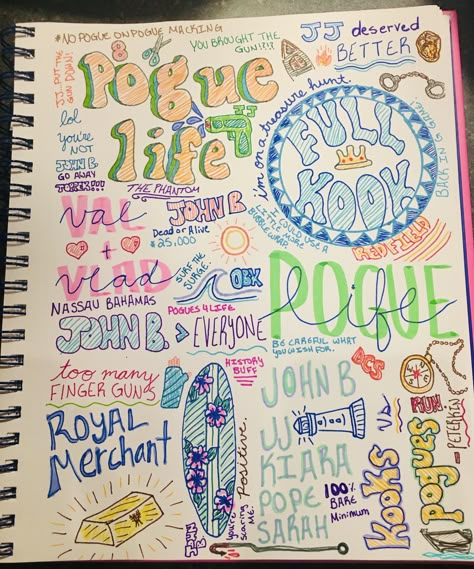 #NO POGUE ON POGUE MACKING
YOU BROUGHT THE
GUN?!?!
JJ deserved
BETTER
JJ... PUT THE
GUN DOWN!
Pogue
life
JJ
lol
you're
NOT
JOHN B.
GO AWAY
TOPPER!!!
THE PHANTOM
i'm on a treasure hunt.
FULL
KOOK
I COULD USE A
LITTLE MORE
BUBBLE WRAP.
REDFIELD
VAL
+
vlad
NASSAU BAHAMAS
JOHN B
Dead or Alive
$25,000
SURF THE
SURGE.
OBX
POGUES 4 LIFE
JOHN B. > EVERYONE
POGUE
life
BE CAREFUL WHAT
YOU WISH FOR.
too many
FINGER GUNS
HISTORY
BUFF
ROYAL
Merchant
you're scaring me.
Positive.
JOHN B.
JOHN B
JJ
KIARA
POPE
SARAH
100%
BARE
Minimum
KOOKS
VS.
pogues
RUN